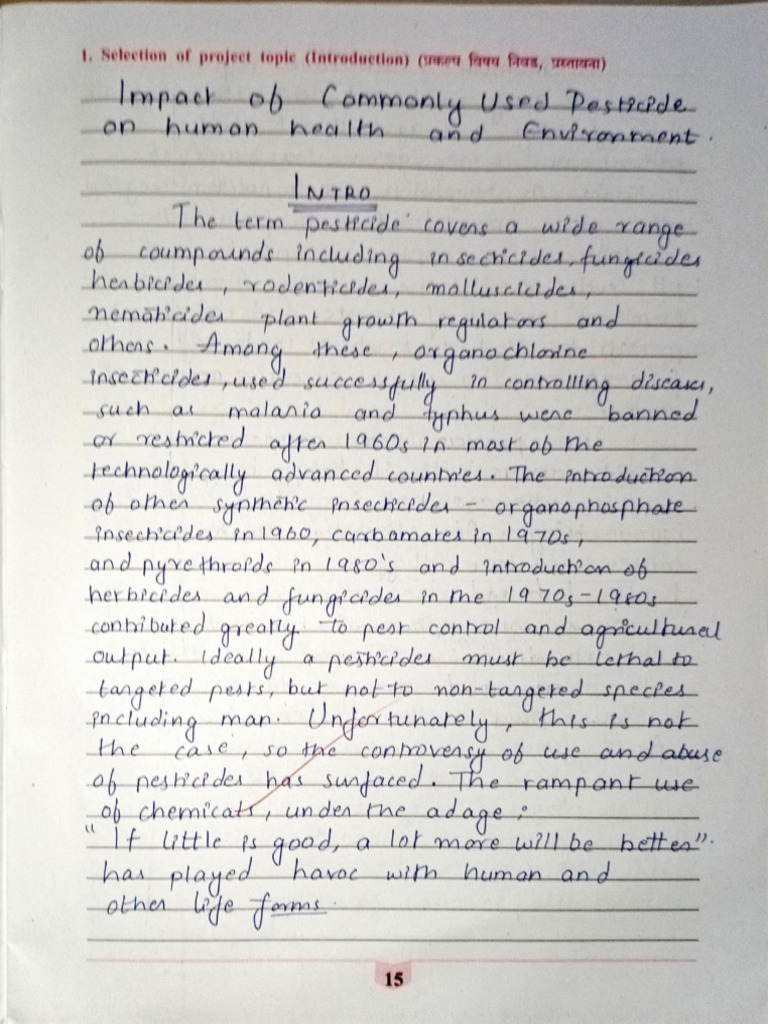 1. Selection of project topic (Introduction) (प्रकल्प विषय निवड, प्रस्तावना)
Impact of Commonly Used Pesticide
on human health and Environment.
INTRO
The term pesticide covers a wide range
of coumpounds including insecticides, fungicides
herbicides, rodenticides, molluscicides,
nematicides plant growth regulators and
others. Among these, organochlorine
insecticides, used successfully in controlling diseases,
such as malaria and typhus were banned
or restricted after 1960s in most of the
technologically advanced countries. The introduction
of other synthetic insecticides - organophosphate
insecticides in 1960, carbamates in 1970s,
and pyrethroids in 1980's and introduction of
herbicides and fungicides in the 1970s-1980s
contributed greatly to pest control and agricultural
output. Ideally a pesticides must be lethal to
targeted pests, but not to non-targered species
including man. Unfortunately, this is not
the case, so the controversy of use and abuse
of pesticides has surfaced. The rampant use
of chemicals, under the adage :
"If little is good, a lot more will be better".
has played havoc with human and
other life forms.
15